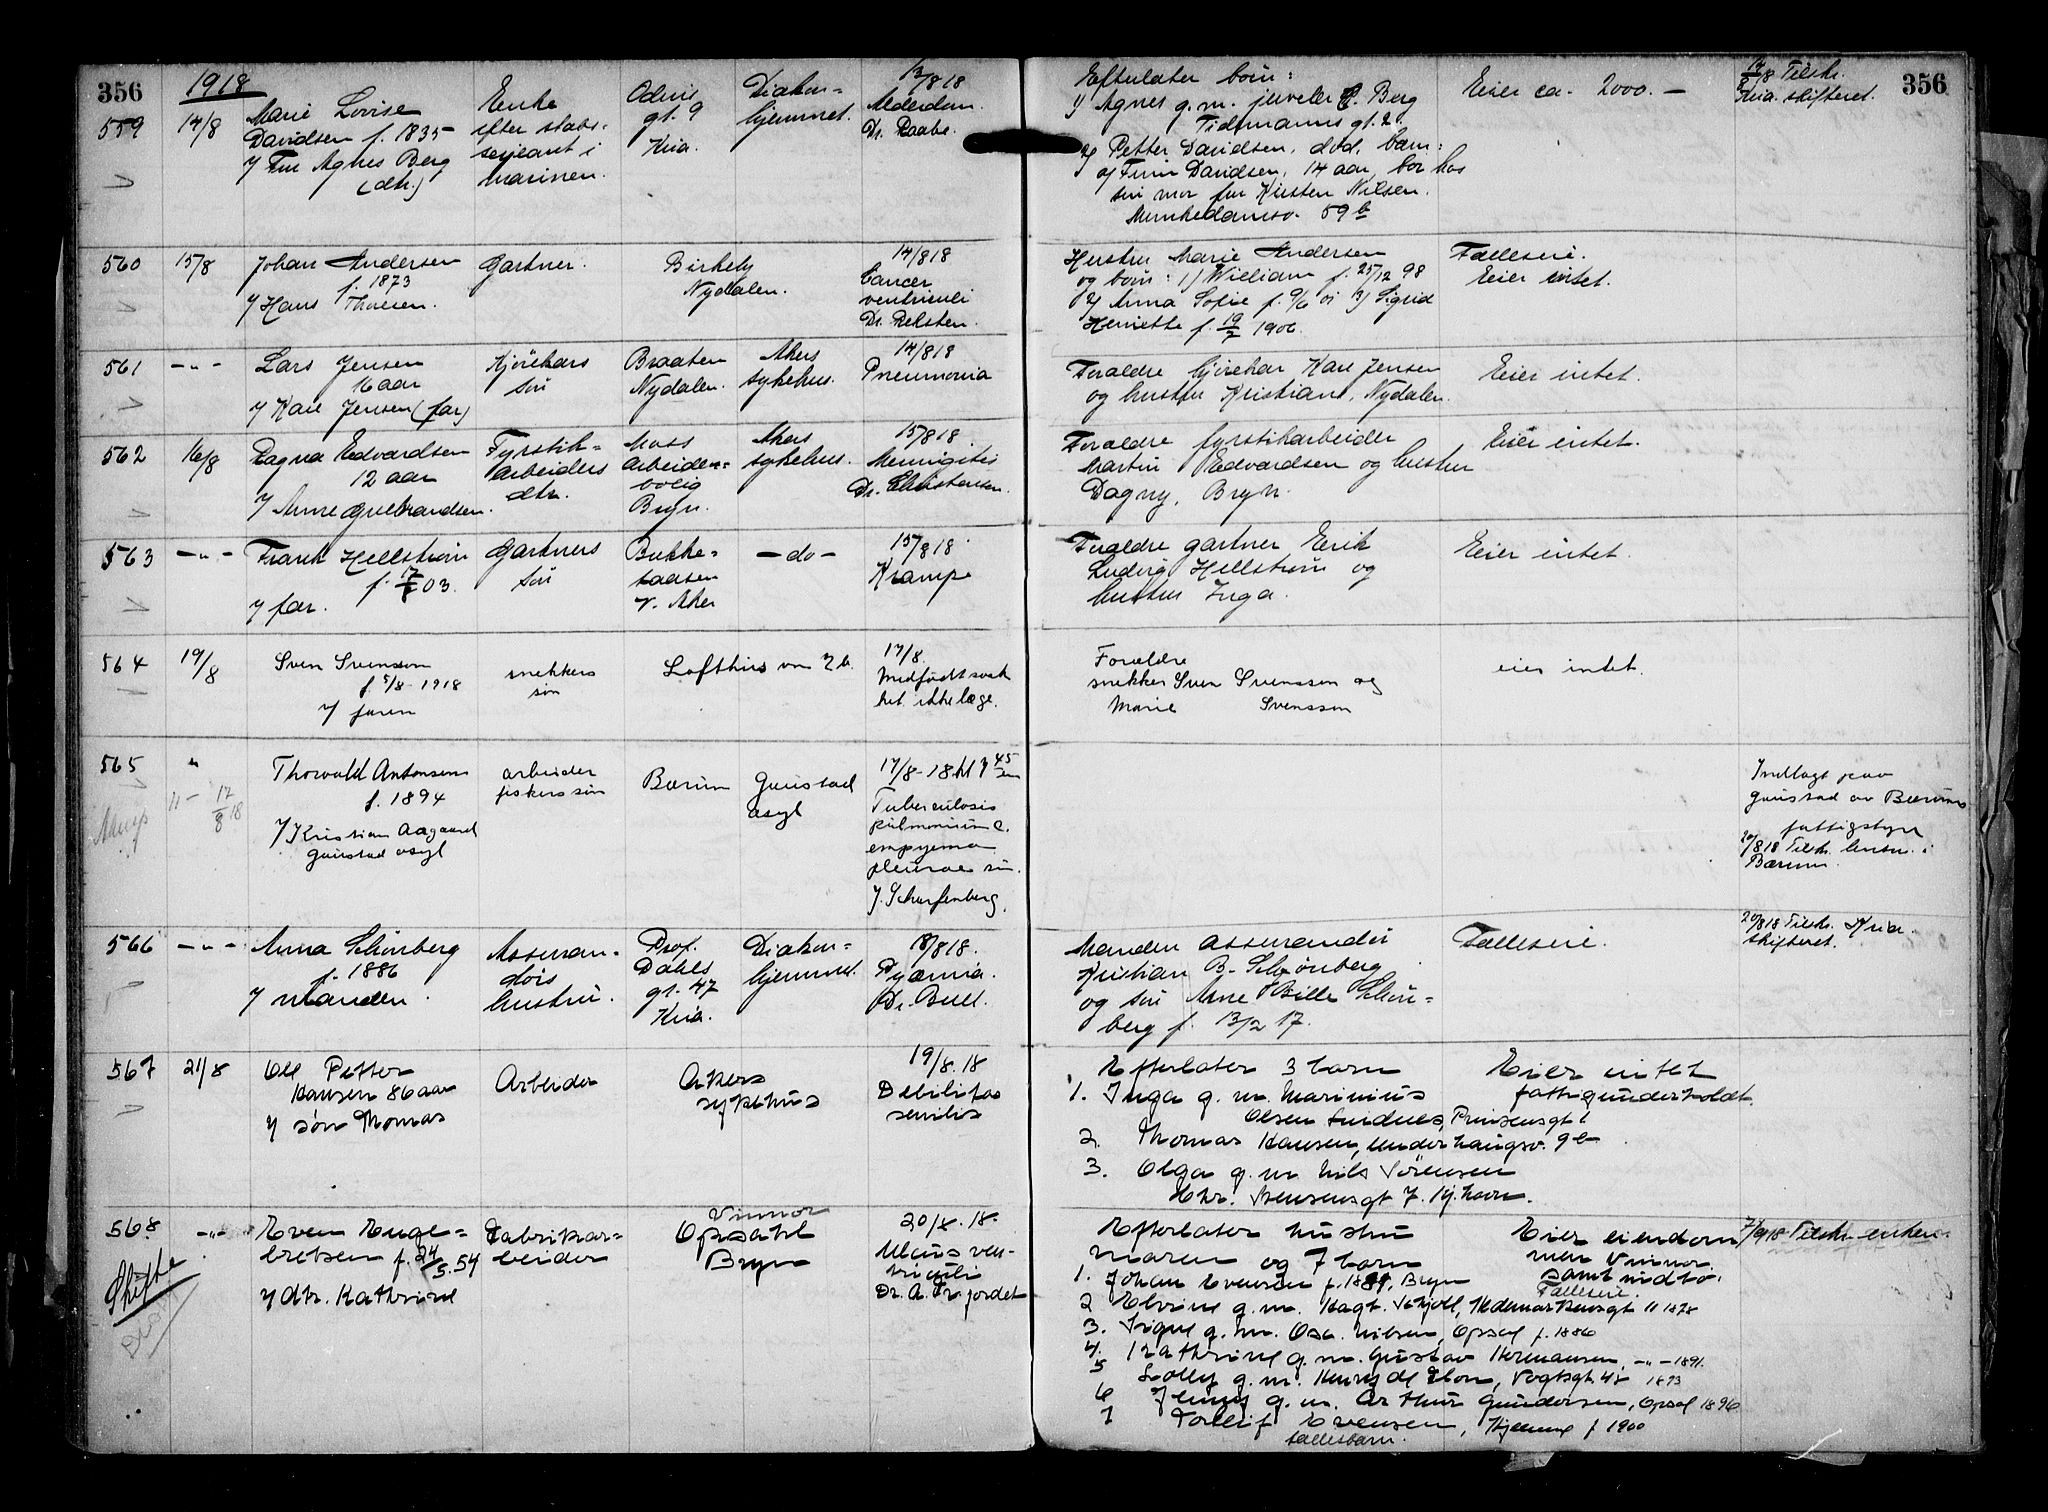 356
1918
559
14/8
Marie Lovise
Davidsen f. 1835
v/ Fru Agnes Berg
(dtr.)
Enke
efter stabs-
serjeant i
marinen.
Odins
gt. 9
Kria.
Diakon-
hjemmet.
13/8 18
Alderdom.
Dr. Raabe.
Efterlater barn:
1/ Agnes g.m. juveler C. Berg
Tidemanns gt. 2.
2/ Petter Davidsen, død, barn:
a/ Finn Davidsen, 14 aar, bor hos
sin mor fru Kirsten Nilsen.
Munkedamsv. 59 b
Eier ca. 2000.-
14/8 Tilskr.
Kria. skifteret.
356
560
15/8
Johan Andersen
f. 1873
v/ Hans Thoresen.
Gartner.
Birkely
Nydalen.
14/8 18
Cancer
ventriculi
Dr. Relsten.
Hustru Marie Andersen
og barn: 1/ William f. 25/12 98
2/ Anna Sofie f. 9/6 01 3/ Sigrid
Henriette f. 19/7 1906.
Fælleseie.
Eier intet.
561
-"-
Lars Jensen
16 aar
v/ Karl Jensen (far)
Kjørekars
søn
Braaten
Nydalen.
Akers
sykehus.
14/8 18
Pneumonia
Forældre kjørekar Karl Jensen
og hustru Kristiane, Nydalen.
Eier intet.
562
16/8
Ragna Edvardsen
12 aar
v/ Anne Gulbrandsen.
Fyrstik-
arbeiders
dtr.
Moss
arbeider-
bolig
Bryn.
Akers
sykehus.
15/8 18.
Meningitis
Dr. Christensen.
Forældre fyrstikarbeider
Martin Edvardsen og hustru
Dagny, Bryn.
Eier intet.
563
-"-
Frank Hellstrøm
f. 17/5 03.
v/ far.
Gartners
søn
Bække-
staasen
v. Aker
-do-
15/8 18.
Krampe
Forældre gartner Erik
Ludvig Hellstrøm og
hustru Inga.
Eier intet.
564
19/8
Sven Svensson
f. 5/8-1918
v/ faren
snekkers
søn
Lofthus
17/8.
Medfødt svak
het. ikke læge.
Forældre
snekker Sven Svensson og
Marie Svensson
eier intet.
565
"
Thorvald Antonsen
f. 1894
v/ Kristian Aagaard
Gaustad asyl
arbeider
fiskers søn
Bærum
Gaustad
asyl
17/8-18 kl 7 45
Tuberculosis
pulmonum c.
empyema
pleurae sin.
J. Scharfenberg.
Indlagt paa
Gaustad av Bærums
fattigstyre
20/8 18 Tilskr. lensm. i
Bærum.
566
-"-
Anna Schönberg
f. 1886
v/ manden.
Assuran-
dørs
hustru.
Prof.
Dahls
gt. 47
Kria.
Diakon-
hjemmet.
18/8 18.
Pyæmia.
Dr. Bull.
Manden assurandør
Kristian B. Schønberg
og søn Arne Bille Schön-
berg f. 13/2 17.
Fælleseie.
20/8 18 Tilskr. Kria.
skifteret.
567
21/8
Ole Petter
Hansen 86 aar
v/ søn Thomas
Arbeider
Akers
sykehus
19/8.18
Debilitas
senilis
Efterlater 3 barn
1. Inga g.m. Marinius
Olsen Lindnes, Prinsensgt 1
2. Thomas Hansen, Underhaugsv. 9 e
3. Olga g.m. Nils Sørensen
Chr. Stensensgt 7. Kj.havn.
Eier intet
fattigunderholdt.
568
-"-
Skifte
Even Enge-
bretsen f. 24/5.54
v/ dtr. Kathrine
Fabrikar-
beider
Vinnor
Opsahl
Bryn
20/8.18.
Ulcus ven-
triculi
Dr. A. Tr. jordet
Efterlater hustru
Maren og 7 barn
1. Johan Evensen f. 1881, Bryn
2 Elvine g.m. Hagb. Schjøll, Hedemarkensgt 11 1878
3. Signe g.m. Osc. Nilsen, Opsal f. 1886
4. Kathrine g.m. Gustav Hermansen, -"- 1891.
5 Lolly g.m. Henry del Elon, Vogtsgt 47 1893
6 Jenny g.m. Arthur Gundersen, Opsal 1896
7 Torleif Evensen, Hjemme f 1900
fællesbarn.
Eier eiendom
men Vinnor.
samt indbo.
Fælleseie.
7/9 18 Tilskr. enken